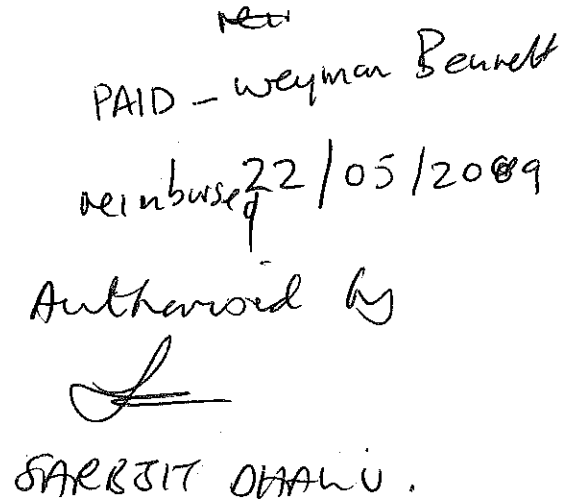 PAID - Weyman Bennett
reimbursed 22/05/2009
Authorised by
SARBJIT